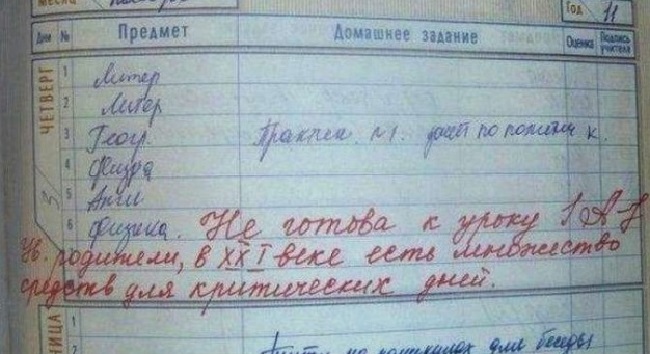 Месяц
Год 11
Дни № Предмет Домашнее задание Оценка Подпись учителя
ЧЕТВЕРГ
3
1 Литер
2 Литер
3 Геогр. Практич. по политич. к.
4 Физра
5 Англ
6 Физика. Не готова к уроку!
Ув. родители, в XXI веке есть множество
средств для критических дней.
1
2 для беседы